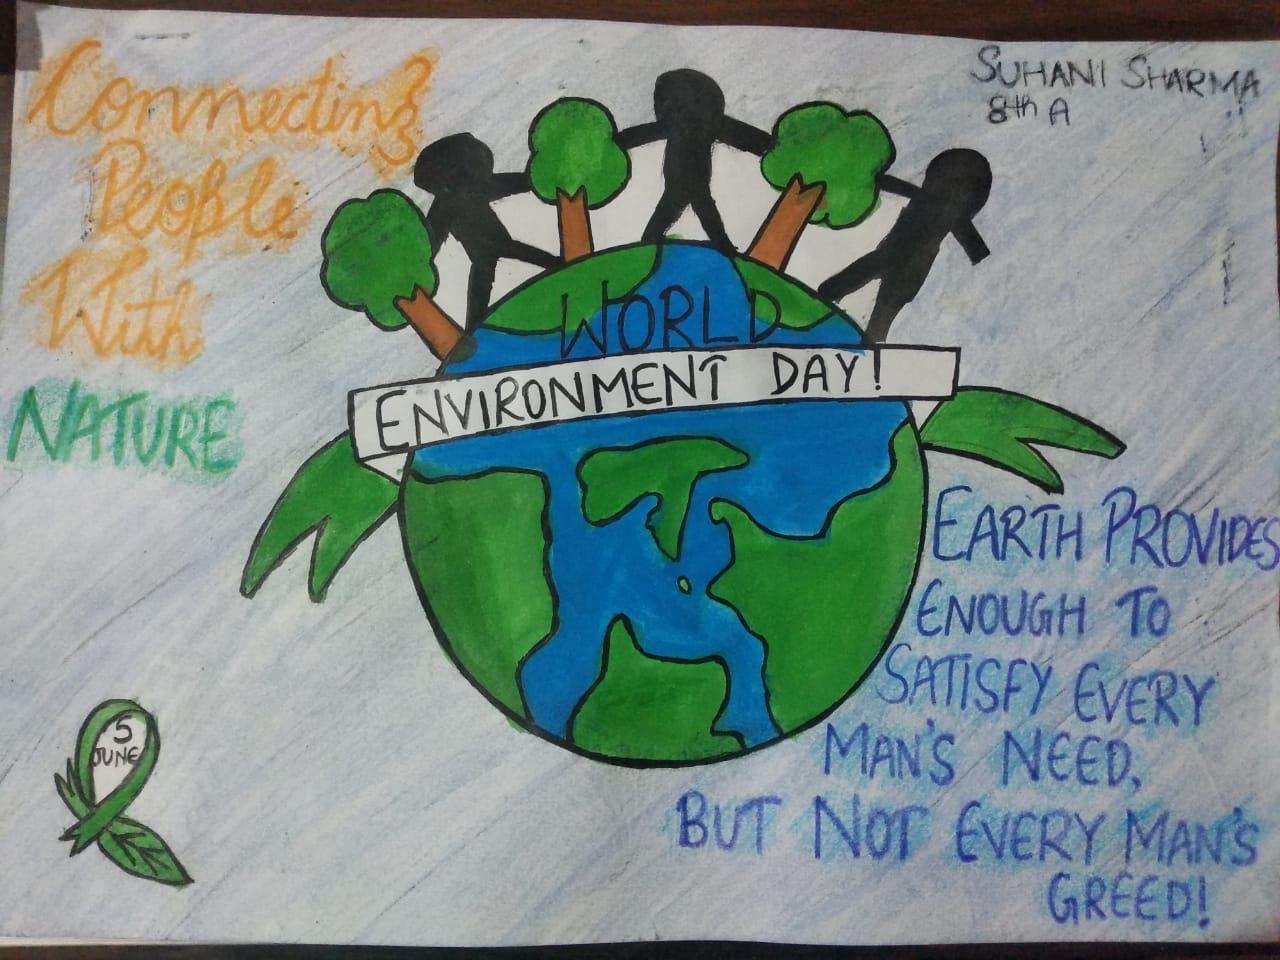 Connecting
People
With
NATURE
SUHANI SHARMA
8th A
WORLD
ENVIRONMENT DAY!
EARTH PROVIDES
ENOUGH TO
SATISFY EVERY
MAN'S NEED,
BUT NOT EVERY MAN'S
GREED!
5
JUNE